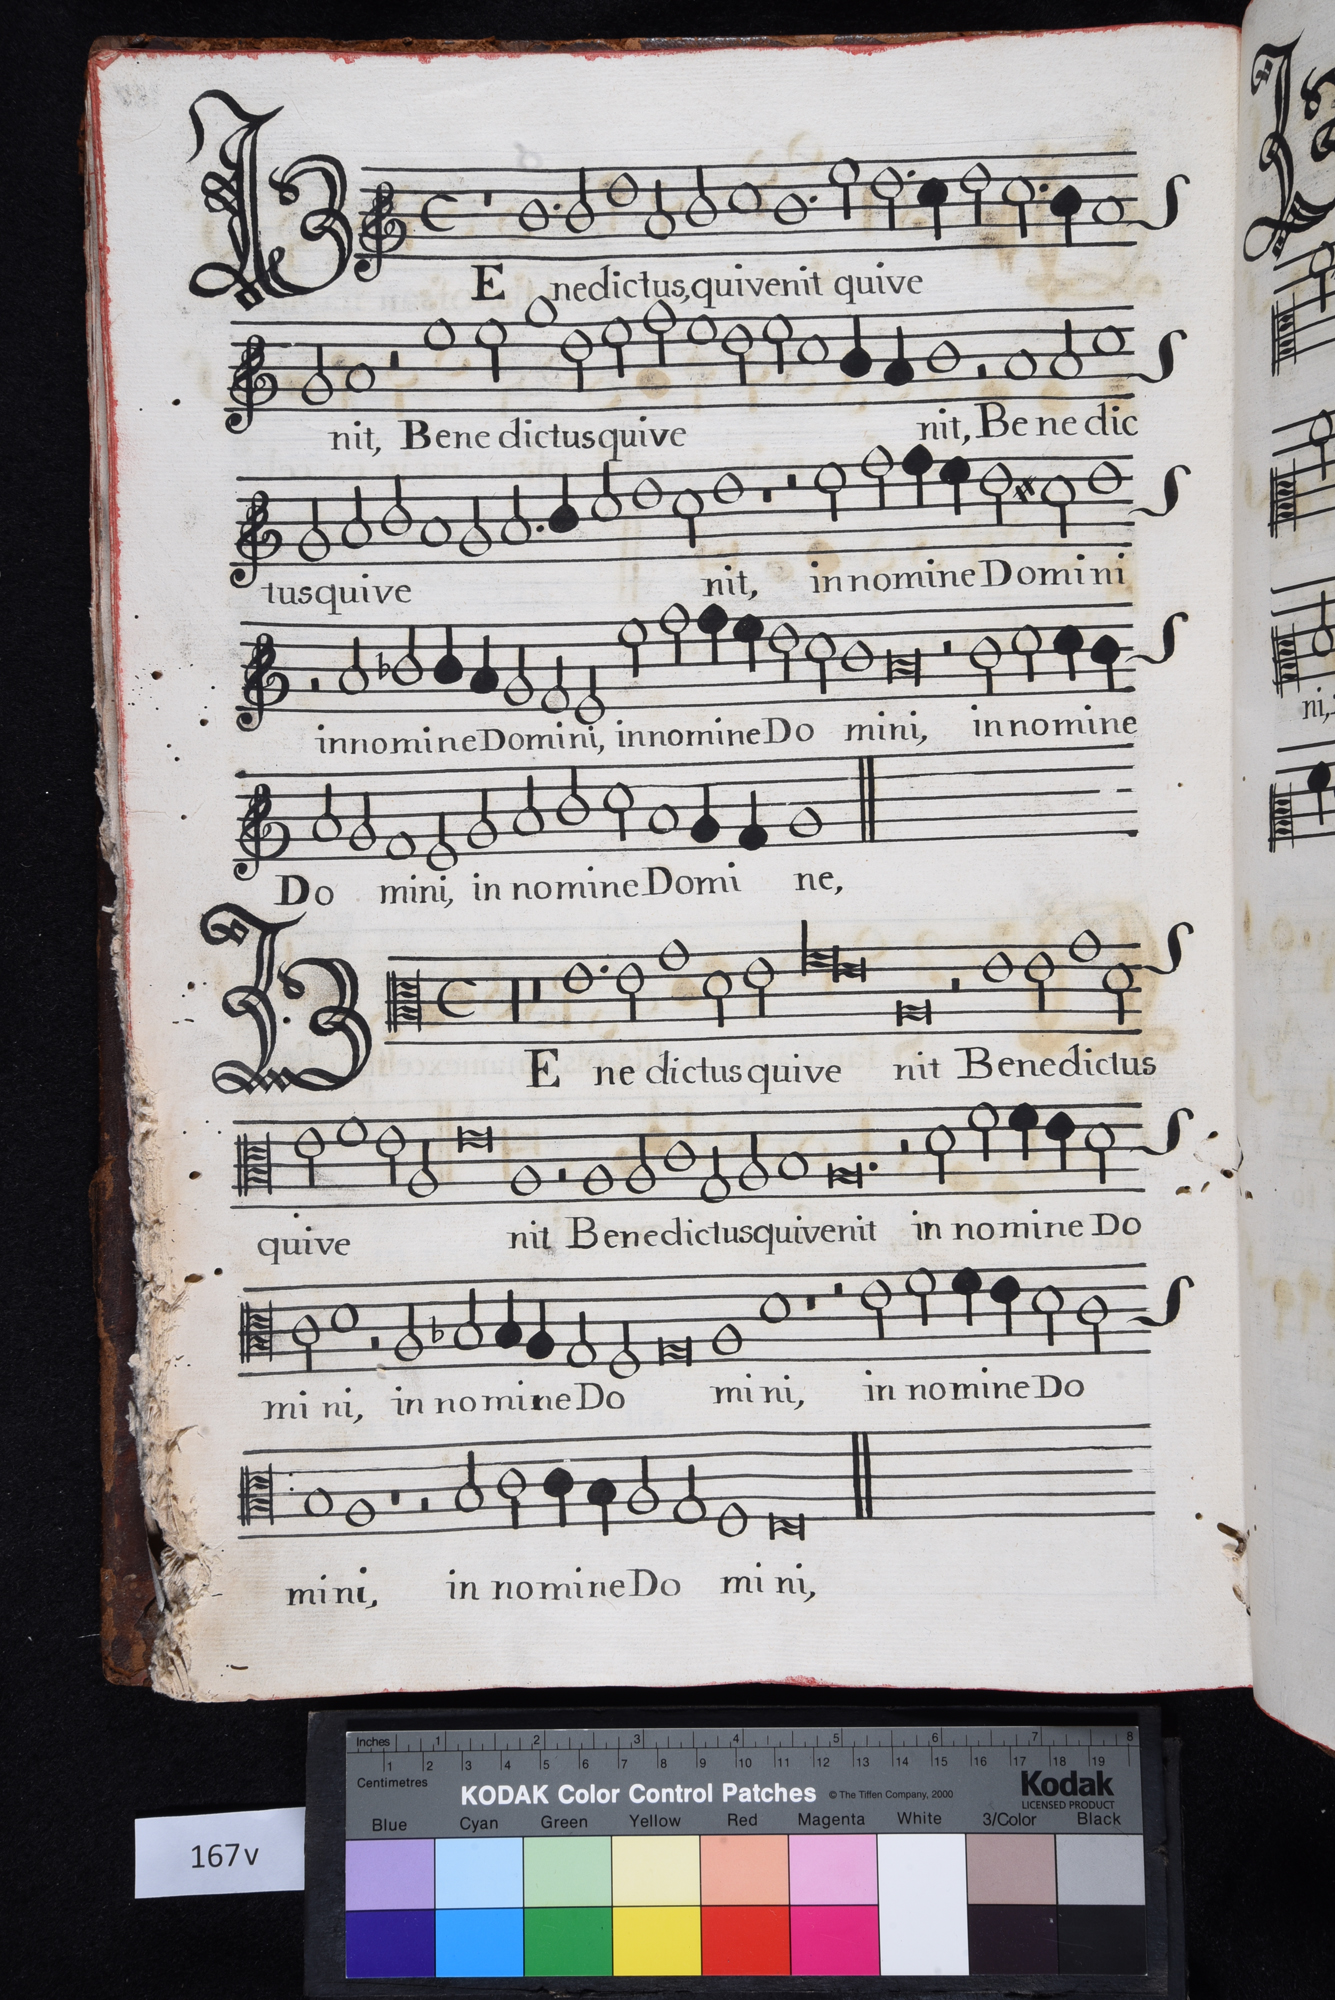 BE nedictus, quivenit quive
nit, Bene dictus quive nit, Be ne dic
tus quive nit, in nomine Domini
in nomine Domini, in nomine Do mini, in nomine
Do mini, in nomine Domi ne,
BE ne dictus quive nit Benedictus
quive nit Benedictus quivenit in nomine Do
mi ni, in nomine Do mi ni, in nomine Do
mi ni, in nomine Do mi ni,
ni,
Inches 1 2 3 4 5 6 7 8
1 2 3 4 5 6 7 8 9 10 11 12 13 14 15 16 17 18 19
Centimetres
KODAK Color Control Patches © The Tiffen Company, 2000 Kodak
LICENSED PRODUCT
Blue Cyan Green Yellow Red Magenta White 3/Color Black
167v